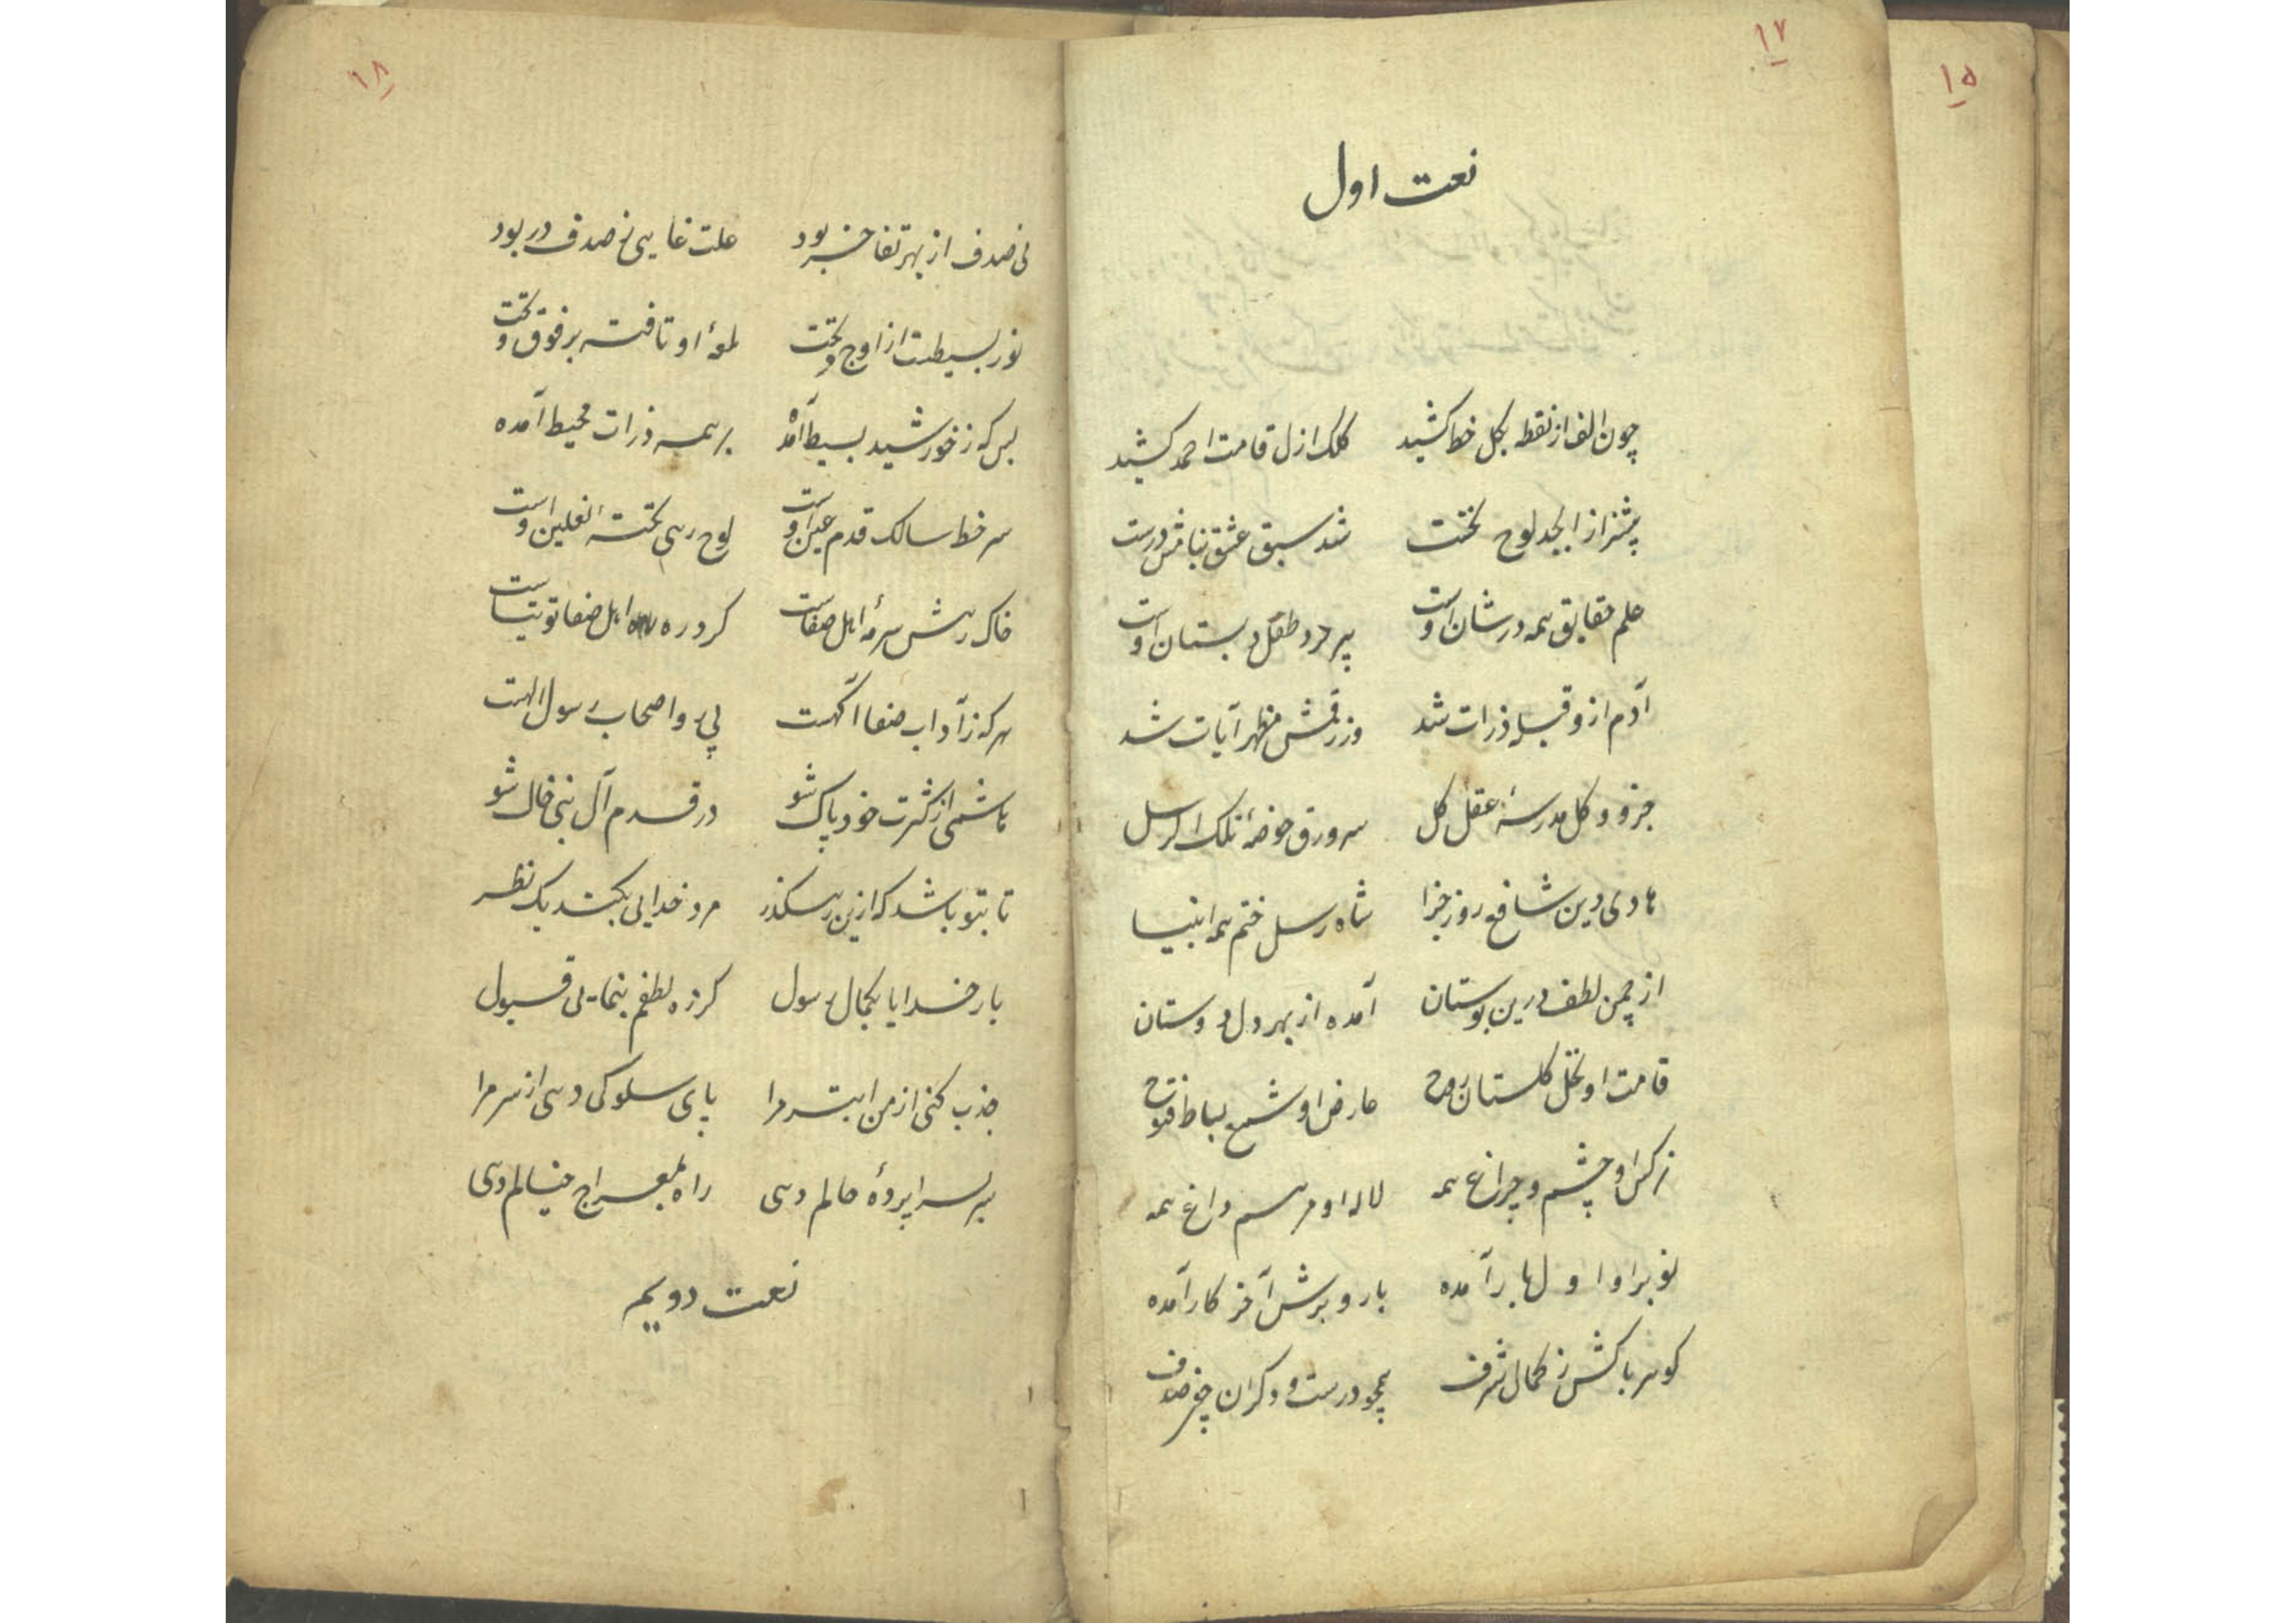 ۱۷
۱۵
نعت اول
چون الف از نقطه بکل خط کشید کلک ازل قامت احمد کشید
پیشتر از ابجد لوح نخست شد سبق عشق بنامش درست
علم حقایق همه در شان اوست پیر خرد طفل دبستان اوست
آدم ازو قبله ذرات شد وز رقمش مظهر آیات شد
جزو و کل مدرسهٔ عقل کل سرورق حوضهٔ تلک الرسل
هادی دین شافع روز جزا شاه رسل ختم همه انبیا
از چمن لطف درین بوستان آمده از بهر دل دوستان
قامت او نخل گلستان روح عارض او شمع بساط فتوح
نرگس او چشم و چراغ همه لاله او مرهم داغ همه
نوبر او اول بار آمده بار و برش آخر کار آمده
گوهر پاکش ز کمال شرف همچو درست و دگران چون صدف
۱۸
نی صدف از بهر تفاخر بود علت غایی ز صدف در بود
نور بسیطست از اوج و تخت لمعهٔ او تافته بر فوق و تحت
بس که ز خورشید بسیط آمده بر همه ذرات محیط آمده
سر خط سالک قدم عین اوست لوح رهی تختهٔ نعلین اوست
خاک رهش سرمهٔ اهل صفاست گرد ره اهل صفا توتیاست
هر که ز آداب صفا آگهست پی رو اصحاب رسول الهست
از کثرت خود پاک شو در قدم آل نبی خاک شو
تا بتو باشد که ازین رهگذر مرد خدایی بکند یک نظر
بار خدایا بکمال رسول کز ره لطفم بنمایی قبول
جذب کنی از من ابتر مرا پای سلوکی دهی از سر مرا
بر سراپردهٔ حالم دهی راه بمعراج خیالم دهی
نعت دویم